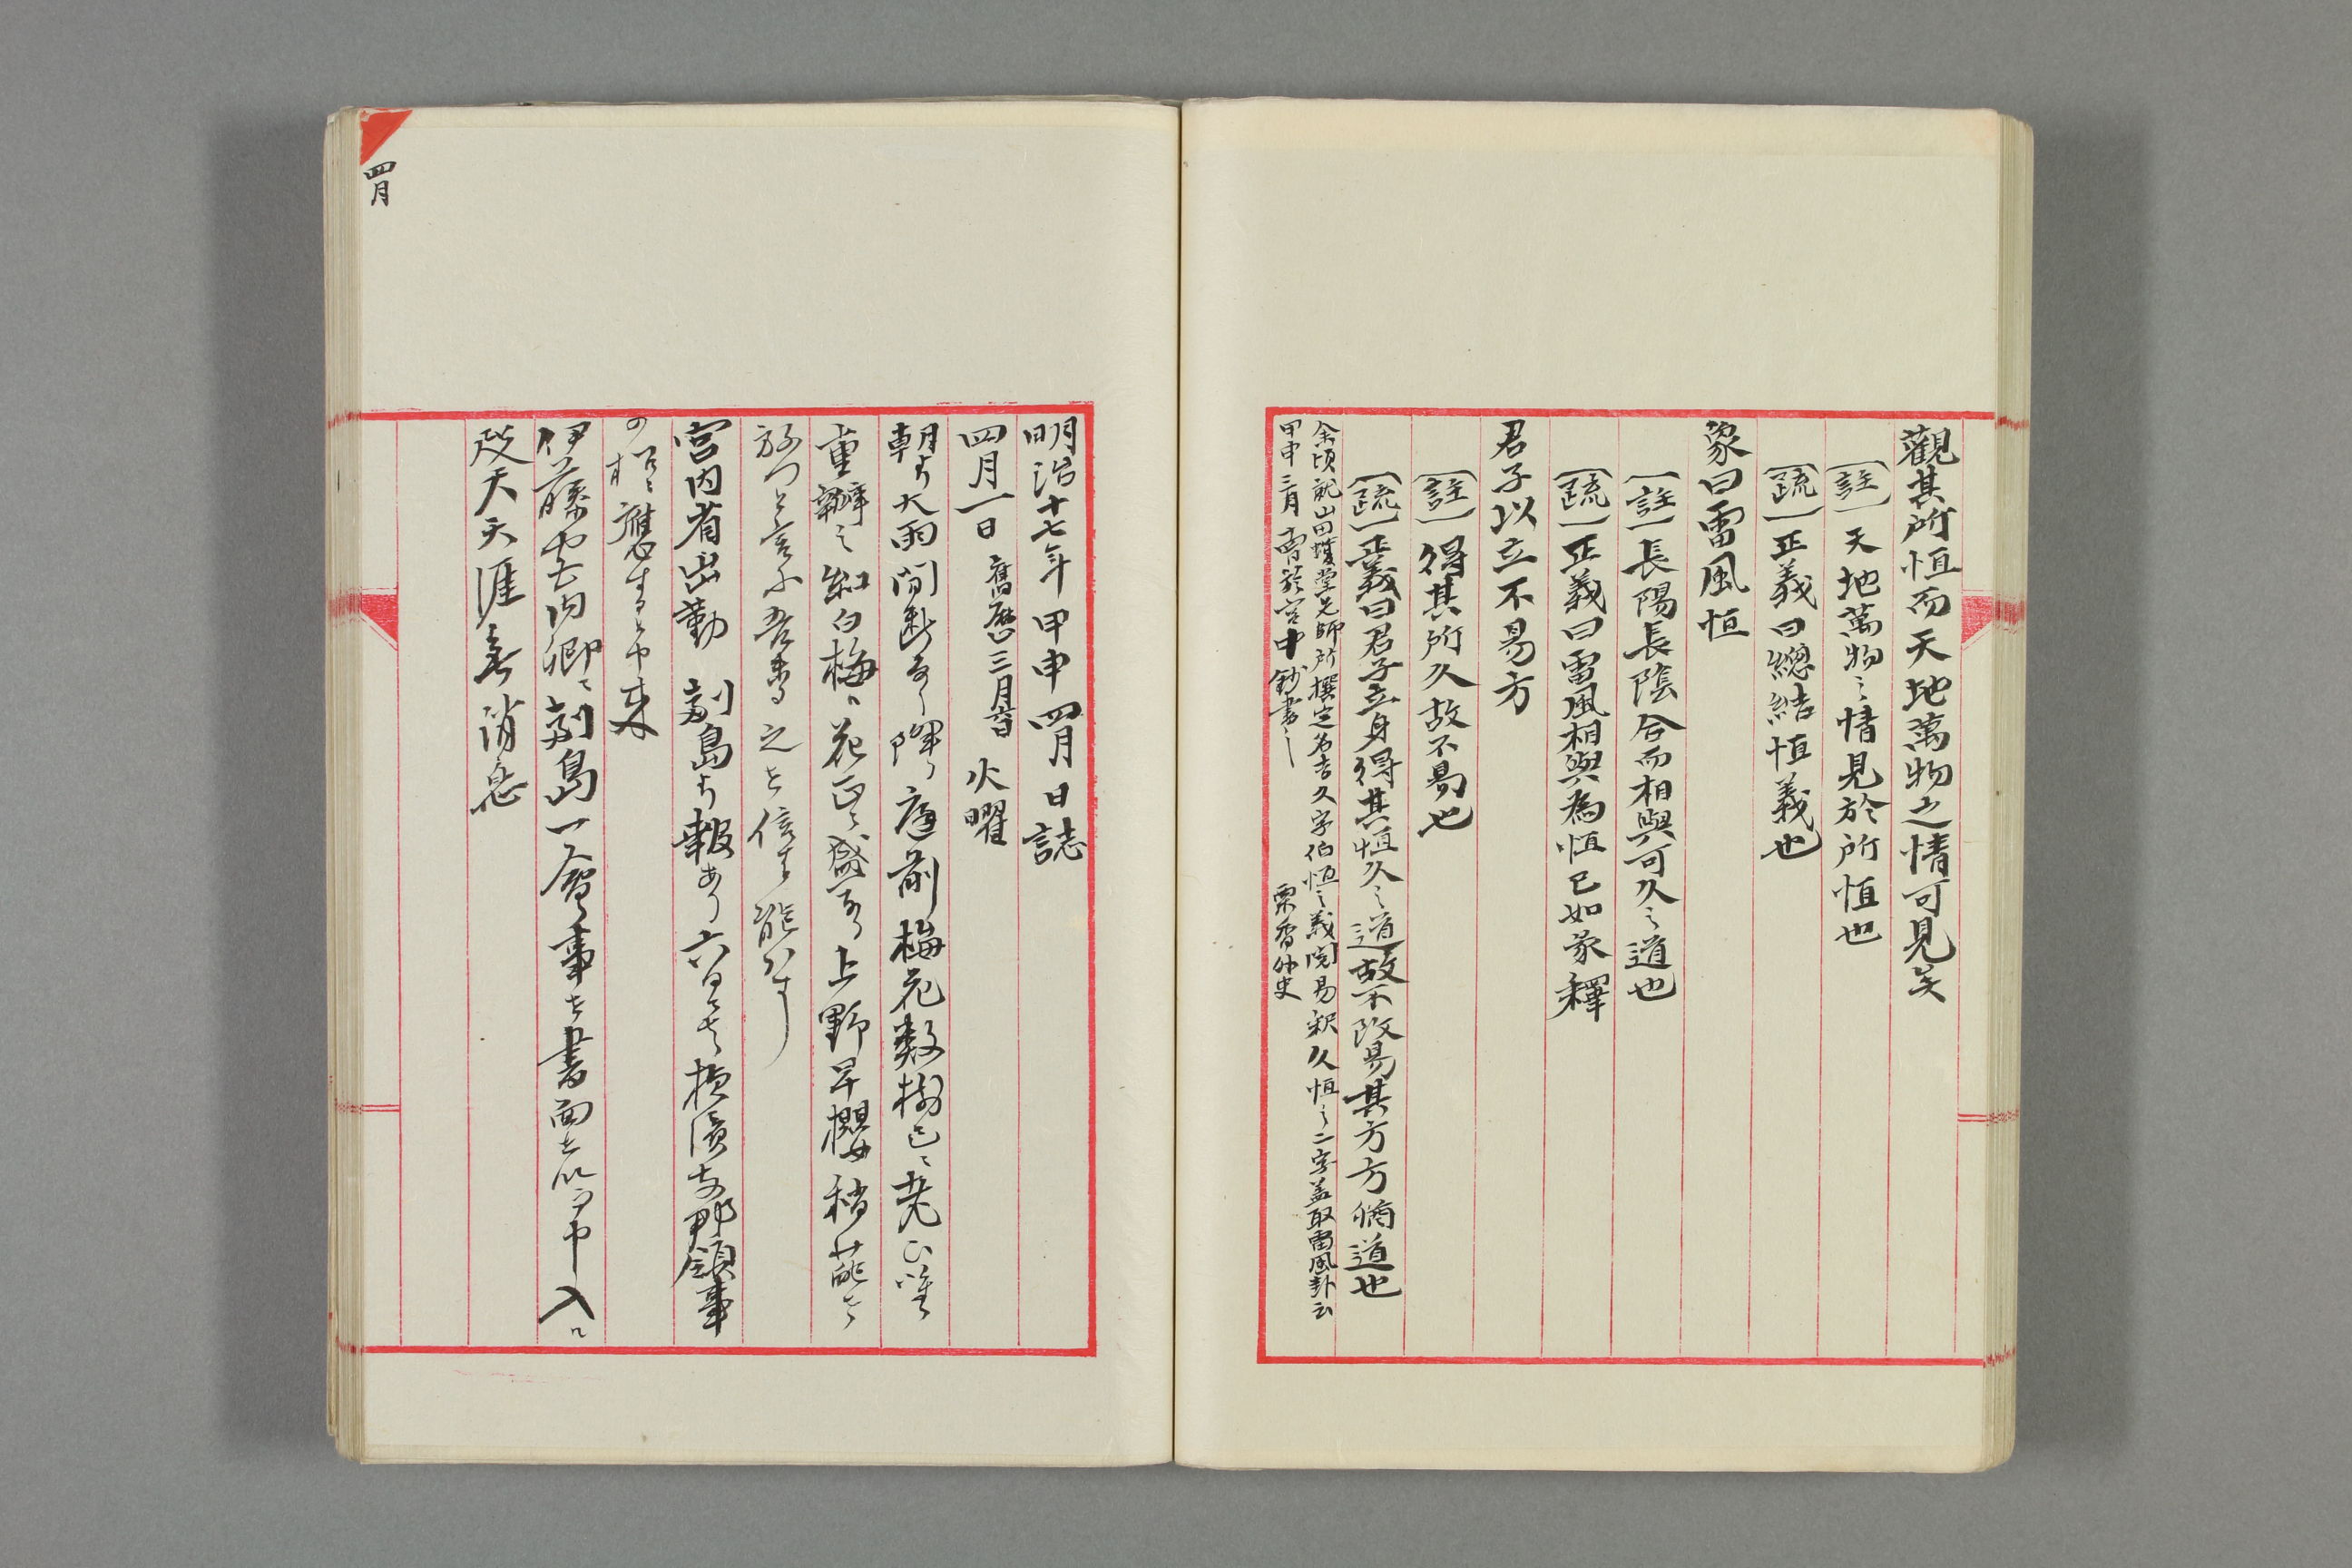 觀其所恒而天地萬物之情可見矣
〔註〕天地萬物之情見於所恒也
〔疏〕正義曰總結恒義也
象曰雷風恒
〔註〕長陽長陰合而相與可久之道也
〔疏〕正義曰雷風相與為恒已如彖釋
君子以立不易方
〔註〕得其所久故不易也
〔疏〕正義曰君子立身得其恒久之道故不改易其方方猶道也
余頃就山田 堂先師所撰定名吉久字伯恒之義閲易釈久恒之二字盖取雷風卦云
甲申三月 於宮中鈔書之 栗香外史
四月
明治十七年甲申四月日誌
四月一日 舊暦三月 火曜
朝より大雨間断なく降り庭前梅花数樹已ニ老ひ唯
重瓣之紅白梅ハ花正ニ盛なり上野早櫻稍 を
放つと言ふ吾 之を信する能ハす
宮内省出勤 副島より報あり六日ニ 横濱支那領事
の招ニ應すると申来
伊藤宮内卿ニ副島一 事を書面を以て申入ル
天天涯 消息